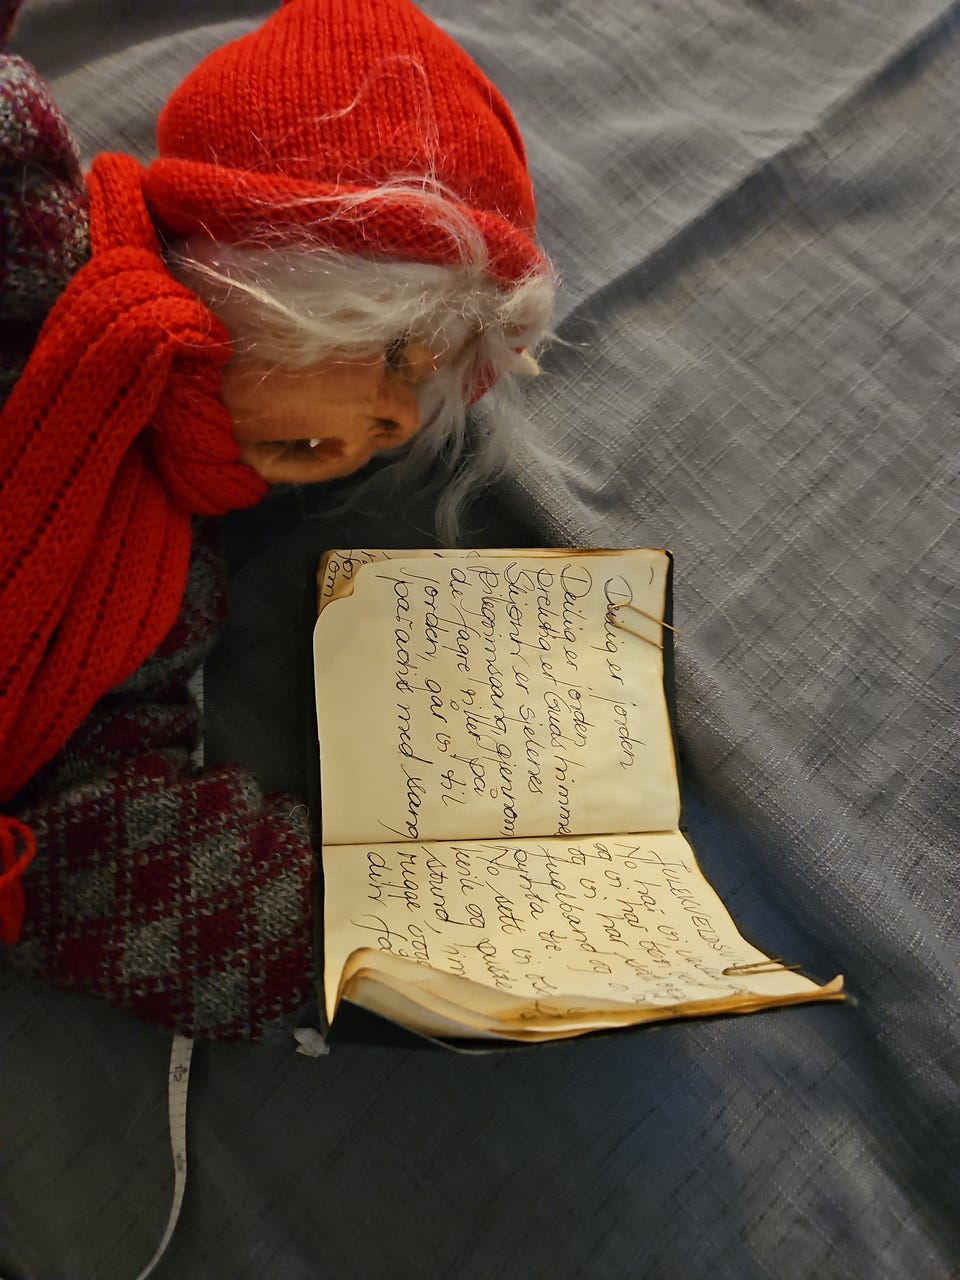 Deilig er jorden
Deilig er jorden
prektig er Guds himmel
Skjønt er sjelenes
pilegrimsgang, gjennom
de fagre riker på
jorden, går vi til
paradis med sang
for
om
No har vi
og vi har
og vi har
fuglband og
pynta tre.
No sett vi
hvile og puste
stund,
rugge
din